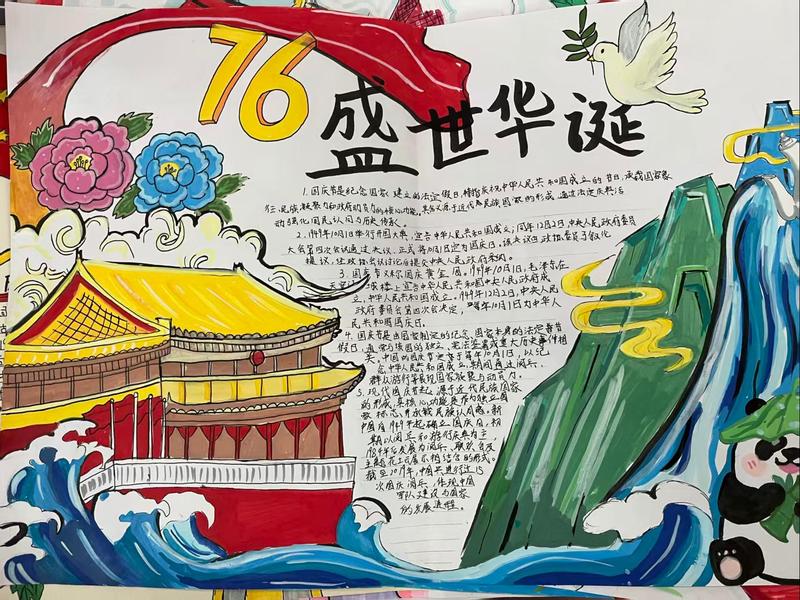 76
盛世华诞
1.国庆节是纪念国家建立的法定假日,特指庆祝中华人民共和国成立的节日,承载国家象
征、民族凝聚力和政府动员力的核心功能,其含义源于近代民族国家的形成,通过法定庆祝活
动强化国民认同与历史传承。
2.1949年10月1日举行开国大典,宣告中华人民共和国成立;同年12月2日,中央人民政府委员
大会第四次会议通过决议,正式将10月1日定为国庆日。该决议
提议,经政协会议讨论后提交中央人民政府采纳。
3.国庆节又称国庆黄金周。1949年10月1日,毛泽东在
天安门城楼上宣告中华人民共和国成
立,中华人民共和国成立。1949年12月2日,中央人民
政府委员会第四次会决定,每年10月1日为中华人
民共和国国庆日。
4.国庆节是由国家制定的纪念国家本身的法定节
假日,通常与该国的独立、宪法签署或重大历史事件相
关。中国的国庆节定于每年10月1日,以纪
念中华人民共和国成立,期间通过阅兵、
群众游行等展现国家成就与动员力。
5.现代国庆节起源于近代民族国家
的形成,其核心功能是作为独立国
家标志,并承载民族认同感。新
中国自1949年起确立国庆后,初
期以阅兵和游行庆典为主,
1984年后发展为阅兵、联欢会及
主题花坛展示相结合的形式。
截至2019年,中国共进行过15
次国庆阅兵,体现中国
军队建设与国家
的发展进程。